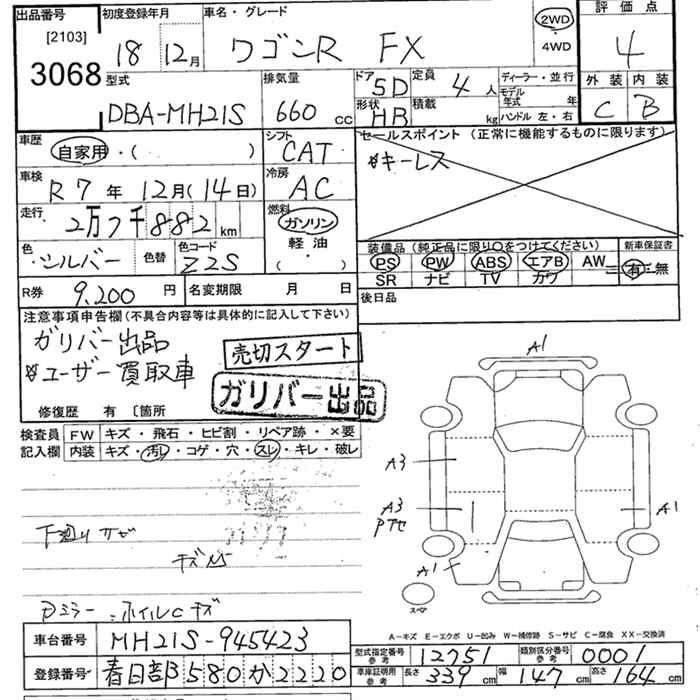 出品番号 初度登録年月 車名・グレード 2WD 評価点
[2103] 18 12月 ワゴンR FX ・4WD 4
3068 型式 排気量 ドア 5D 定員 4人 ディーラー・並行 外装 内装
DBA-MH21S 660 cc 形状 HB 積載 kg モデル年式 年 C B
ハンドル 左・右
車歴 自家用・( ) シフト CAT セールスポイント (正常に機能するものに限ります)
車検 R7年 12月(14日) 冷房 AC キーレス
走行 2万7千882km 燃料 ガソリン
軽油
( )
色 シルバー 色替 色コード Z2S 装備品 (純正品に限り○をつけてください) 新車保証書
PS PW ABS エアB AW 有・無
SR ナビ TV カワ
R券 9,200円 名変期限 月 日 後日品
注意事項申告欄(不具合内容等は具体的に記入して下さい)
ガリバー出品
ユーザー買取車
売切スタート
ガリバー出品
修復歴 有〔箇所
検査員 FW キズ・飛石・ヒビ割・リペア跡・×要
記入欄 内装 キズ・汚レ・コゲ・穴・スレ・キレ・破レ
A1
A3
A3
A1
A1
スペア
下廻りサビ
キズ
ミラー ホイルC キズ
A−キズ E−エクボ U−凹み W−補修跡 S−サビ C−腐食 XX−交換済
車台番号 MH21S-945423
型式指定番号 参考 12751 類別区分番号 参考 0001
登録番号 春日部 580 か 2220
車庫証明用 参考 長さ 339cm 幅 147cm 高さ 164cm